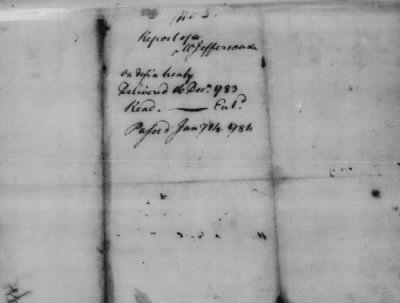 No 5.
Report of
Mr Jefferson &
on defin treaty
Delivered 16 Decr. 1783
Read. — Entd.
Passed Jany 14. 1784